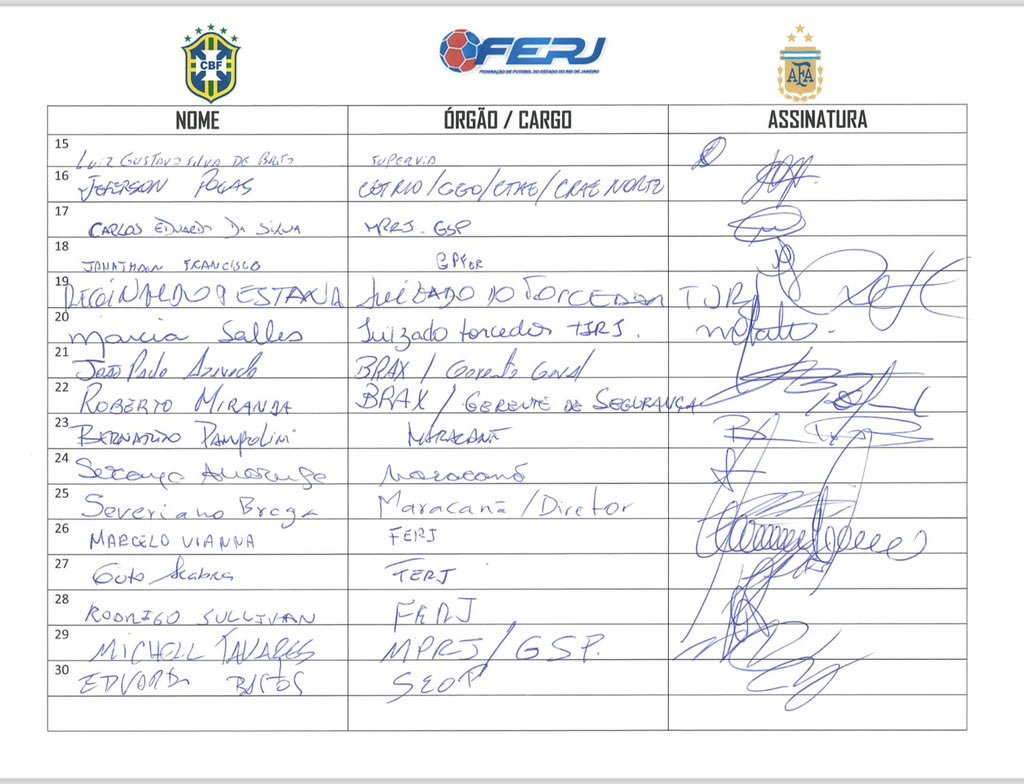 CBF
FERJ
FEDERAÇÃO DE FUTEBOL DO ESTADO DO RIO DE JANEIRO
AFA
NOME ÓRGÃO / CARGO ASSINATURA
15 LUIZ GUSTAVO SILVA DE BRITO SUPERVIA
16 JEFERSON CETRIO/GEO/CTAE/CRAE NORTE
17 CARLOS EDUARDO DA SILVA MPRJ - GSP
18 JONATHAN FRANCISCO
19 REGINALDO JUIZADO DO TORCEDOR TJRJ
20 Marcia Salles Juizado torcedor TJRJ.
21 João Paulo Azevedo BRAX / Gerente Geral
22 ROBERTO MIRANDA BRAX / GERENTE DE SEGURANÇA
23 BERNARDO PAMPOLINI MARACANÃ
24 Maracanã
25 Severiano Braga Maracanã / Diretor
26 MARCELO VIANNA FERJ
27 Guto FERJ
28 RODRIGO SULLIVAN FERJ
29 MICHELL TAVARES MPRJ / GSP.
30 EDUARDO BASTOS